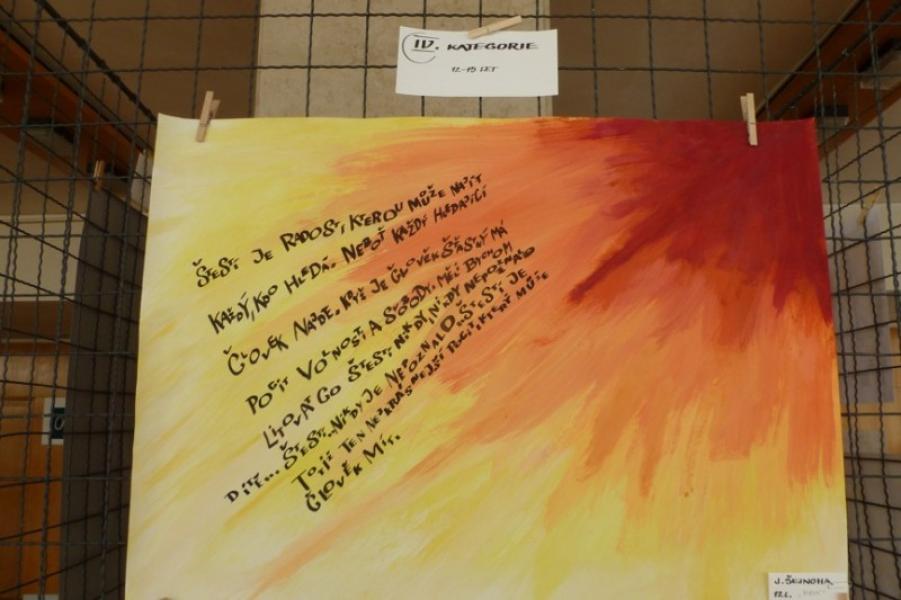 IV. KATEGORIE
12-15 LET
ŠTĚSTÍ JE RADOST, KTEROU MŮŽE NAJÍT
KAŽDÝ, KDO HLEDÁ. NEBOŤ KAŽDÝ HLEDAJÍCÍ
ČLOVĚK NAJDE. KDYŽ JE ČLOVĚK ŠŤASTNÝ MÁ
POCIT VOLNOSTI A SVOBODY. MĚLI BYCHOM
LITOVAT CO ŠTĚSTÍ NIKDY NEPOZNALO
DÍTĚ... ŠTĚSTÍ NIKDY JE NEPOZNALO. ŠTĚSTÍ JE
TOTIŽ TEN NEJKRÁSNĚJŠÍ POCIT, KTERÝ MŮŽE
ČLOVĚK MÍT.
J. ŠKJNOHA,
12 L.